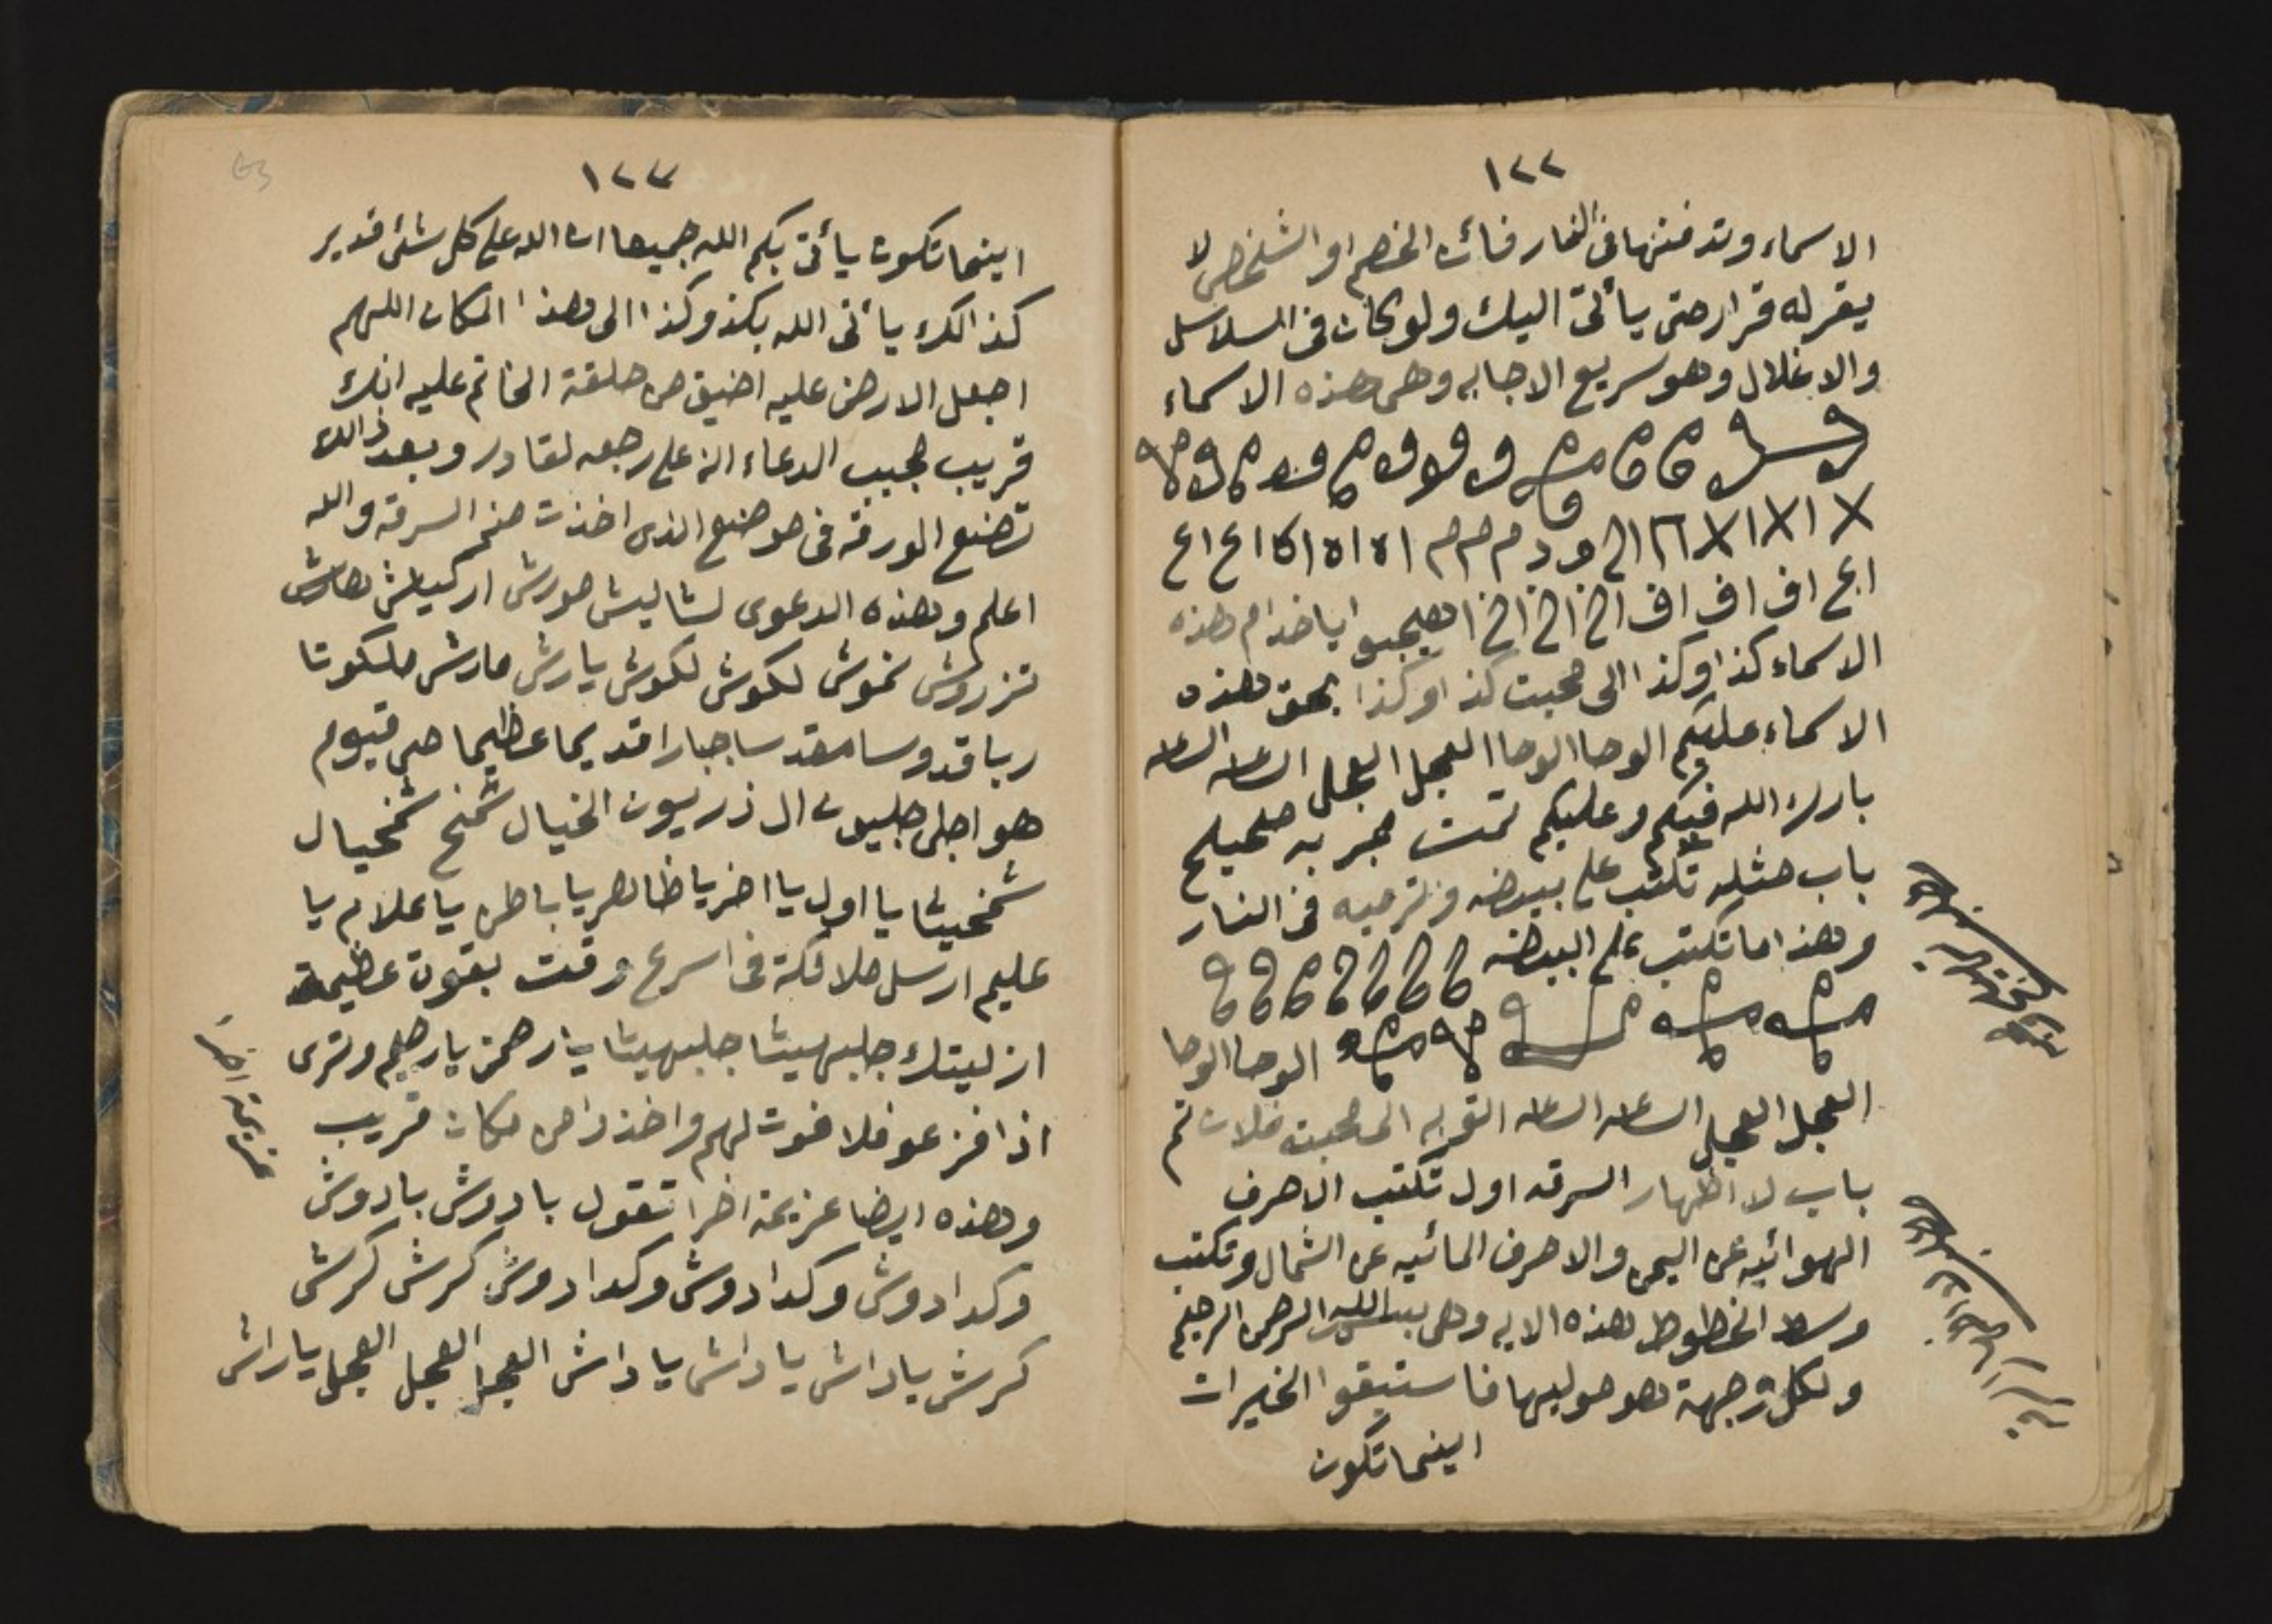 ١٢٢
الاسماء وتدفنها في النار فائن الخصم او الشخص لا
يقر له قرار حتى يأتي اليك ولو كان في السلاسل
والاغلال وهو سريع الاجابه وهي هذه الاسماء
ا ا ع اف اف اف اخ اخ اخ اهيجبو ايا خدام هذه
الاسماء كذا وكذا الى محبت كذا وكذا بحق هذه
الاسماء عليكم الوحا الوحا العجل العجل الساعه الساعه
بارك الله فيكم وعليكم تمت مجربه صحيح
باب مثله تكتب على بيضه وترميه في النار
وهذا ما تكتب على البيضه
الوحا الوحا
العجل العجل الساعه الساعه القربه الى محبت فلان تم
باب لا اظهار السرقه اول تكتب الاحرف
الهوائيه عن اليمن والاحرف المائيه عن الشمال وتكتب
وسط الخطوط هذه الايه وهي بسم الله الرحمن الرحيم
ولكل وجهة هو موليها فاستبقوا الخيرات
اينما تكون
١٢٣
اينما تكون يأتي بكم الله جميعا ان الله على كل شئ قدير
كذالك يأتي الله بكذ وكذا الى هذا المكان اللهم
اجعل الارض عليه اضيق من حلقة الخاتم عليه انك
قريب مجيب الدعاء انه على رجعه لقادر وبعد ذالك
تضع الورقه في موضع الذي اخذت منه السرقه والله
اعلم وهذه الدعوى لشاليش مورش اركيلش هارش
تزروش نموش لكوش لكوش يارش مارش ملكوتا
ربا قدوسا مقدسا جبارا قديما عظيما حي قيوم
هو اجلى جليون ال ذريون الخيال شمخ شمخيال
شمخيثا يا اول يا اخر يا ظاهر يا باطن يا علام يا
عليم ارسل ملائكة في اسرع وقت بقوة عظيمة
ازليتك جلبهيثا جلبهيثا يا رحمن يا رحيم وترى
اذا فزعو فلا فوت لهم واخذوا من مكان قريب
وهذه ايضا عزيمة اخرا تقول بادوش بادوش
وكدادوش وكدادوش وكدادوش كرش كرش
كرش ياداش ياداش ياداش العجل العجل العجل ياراش
عزيمة اخرا